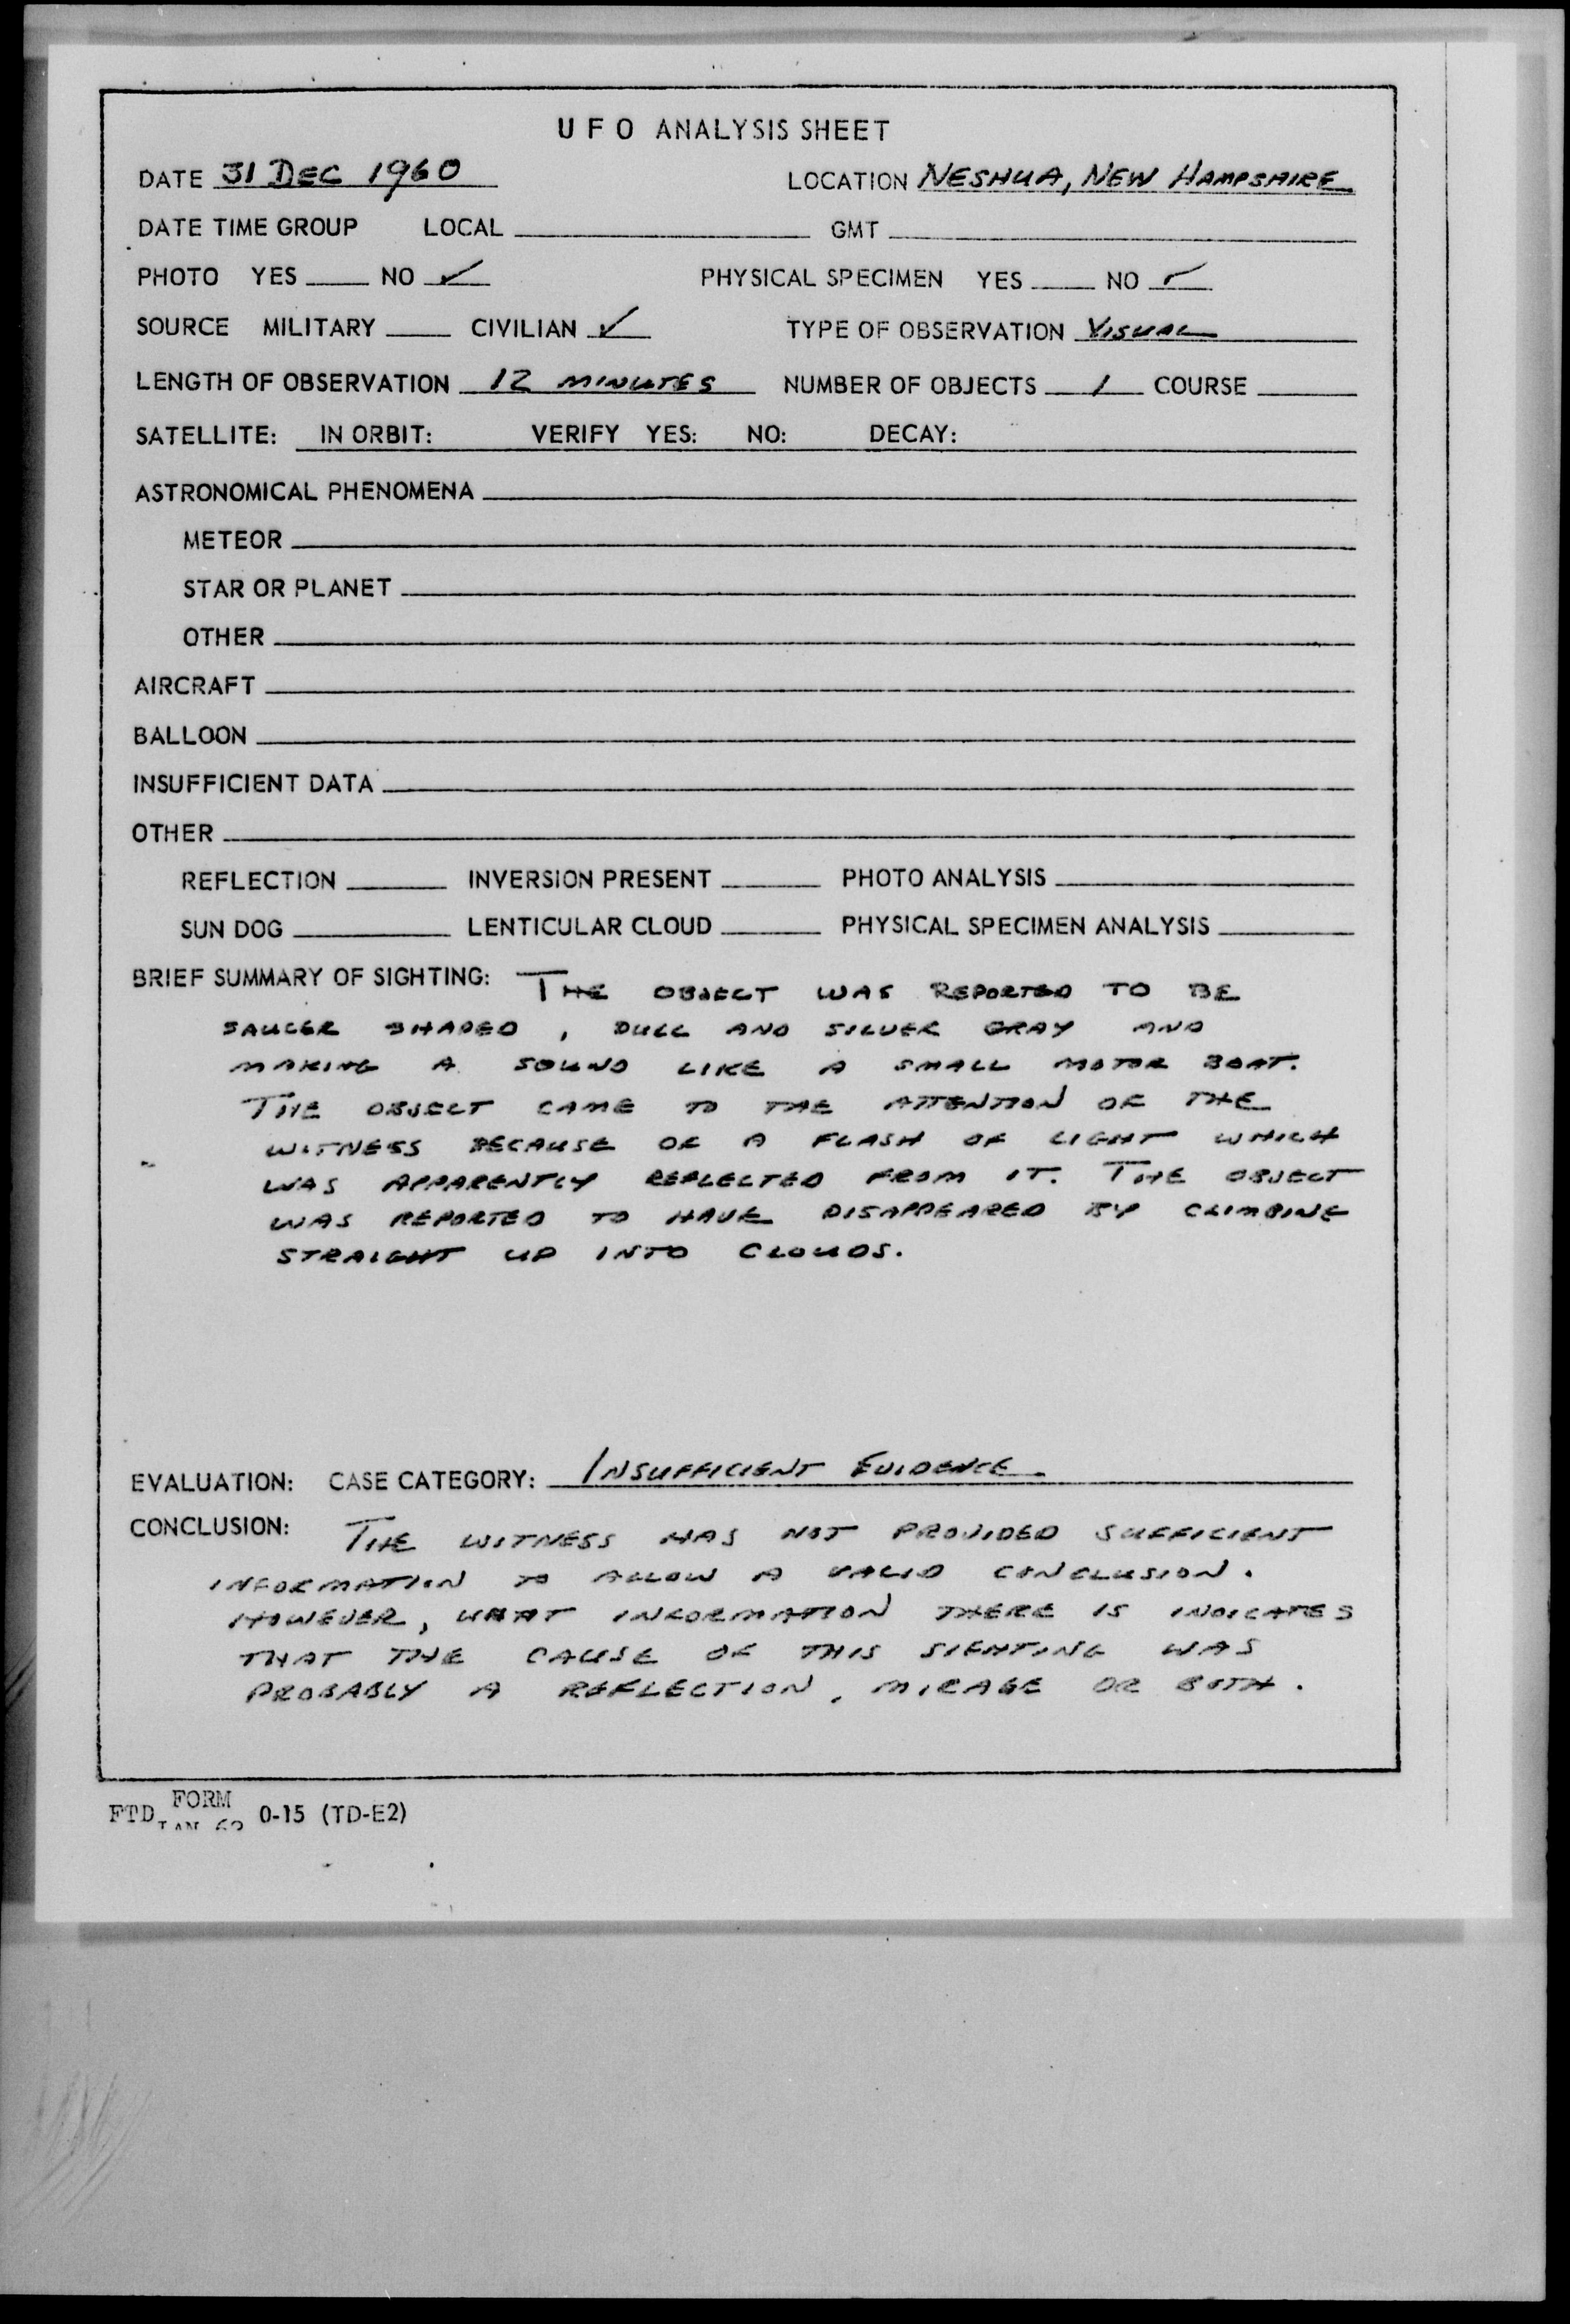 U F O ANALYSIS SHEET
DATE 31 DEC 1960 LOCATION NESHUA, NEW HAMPSHIRE
DATE TIME GROUP LOCAL GMT
PHOTO YES NO ✓ PHYSICAL SPECIMEN YES NO ✓
SOURCE MILITARY CIVILIAN ✓ TYPE OF OBSERVATION VISUAL
LENGTH OF OBSERVATION 12 MINUTES NUMBER OF OBJECTS 1 COURSE
SATELLITE: IN ORBIT: VERIFY YES: NO: DECAY:
ASTRONOMICAL PHENOMENA
METEOR
STAR OR PLANET
OTHER
AIRCRAFT
BALLOON
INSUFFICIENT DATA
OTHER
REFLECTION INVERSION PRESENT PHOTO ANALYSIS
SUN DOG LENTICULAR CLOUD PHYSICAL SPECIMEN ANALYSIS
BRIEF SUMMARY OF SIGHTING: THE OBJECT WAS REPORTED TO BE
SAUCER SHAPED, DULL AND SILVER GRAY AND
MAKING A SOUND LIKE A SMALL MOTOR BOAT.
THE OBJECT CAME TO THE ATTENTION OF THE
WITNESS BECAUSE OF A FLASH OF LIGHT WHICH
WAS APPARENTLY REFLECTED FROM IT. THE OBJECT
WAS REPORTED TO HAVE DISAPPEARED BY CLIMBING
STRAIGHT UP INTO CLOUDS.
EVALUATION: CASE CATEGORY: INSUFFICIENT EVIDENCE.
CONCLUSION: THE WITNESS HAS NOT PROVIDED SUFFICIENT
INFORMATION TO ALLOW A VALID CONCLUSION.
HOWEVER, WHAT INFORMATION THERE IS INDICATES
THAT THE CAUSE OF THIS SIGHTING WAS
PROBABLY A REFLECTION, MIRAGE OR BOTH.
FTD FORM JAN 62 0-15 (TD-E2)